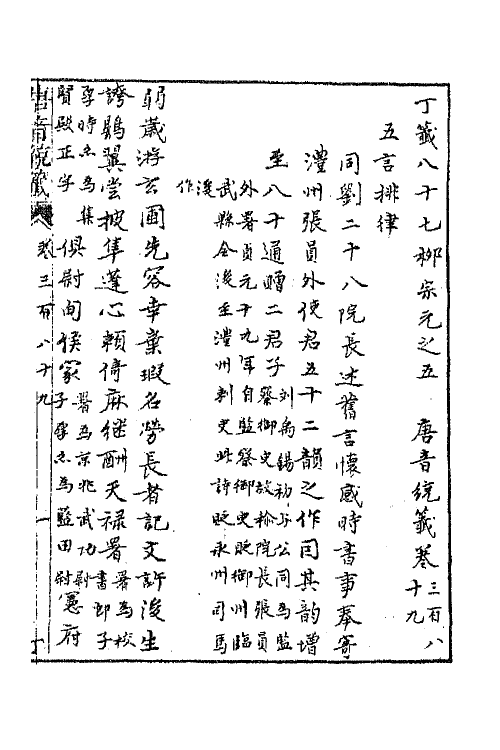 丁籤八十七柳宗元之五　唐音統籤卷三百八十九
五言排律
同劉二十八院長述舊言懷感時書事奉寄
澧州張員外使君五十二韻之作因其韻增
至八十通贈二君子劉禹錫初与公同為監察御史故称院長張員
外署貞元十九年自監察御史貶郴州臨
武縣令後至澧州刺史此詩貶永州司馬
後作
弱歲游玄圃先容幸棄瑕名勞長者記文許後生
誇鷃翼嘗披隼蓬心賴倚麻继酬天禄署署為校書郎子
厚時亦為集賢殿正字俱尉甸侯家署為京兆武功尉子厚亦為藍田尉憲府
唐音統籤 卷三百八十九 一